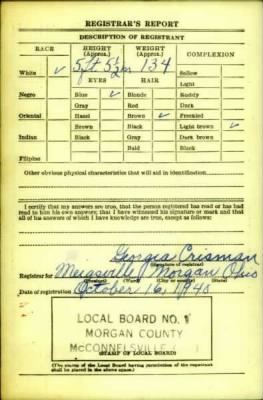 REGISTRAR'S REPORT
DESCRIPTION OF REGISTRANT
RACE HEIGHT (Approx.) WEIGHT (Approx.) COMPLEXION
White ✓ 5 ft 5½ in 134 Sallow
EYES HAIR Light
Negro Blue ✓ Blonde Ruddy
Gray Red Dark
Oriental Hazel Brown ✓ Freckled
Brown Black Light brown ✓
Indian Black Gray Dark brown
Bald Black
Filipino
Other obvious physical characteristics that will aid in identification
I certify that my answers are true; that the person registered has read or has had
read to him his own answers; that I have witnessed his signature or mark and that
all of his answers of which I have knowledge are true, except as follows:
Georgia Crisman
(Signature of registrar)
Registrar for Meigsville Morgan Ohio
(Ward) (City or county) (State)
Date of registration October 16, 1940
LOCAL BOARD NO. 1
MORGAN COUNTY
McCONNELSVILLE
(STAMP OF LOCAL BOARD)
(The stamp of the Local Board having jurisdiction of the registrant
shall be placed in the above space.)